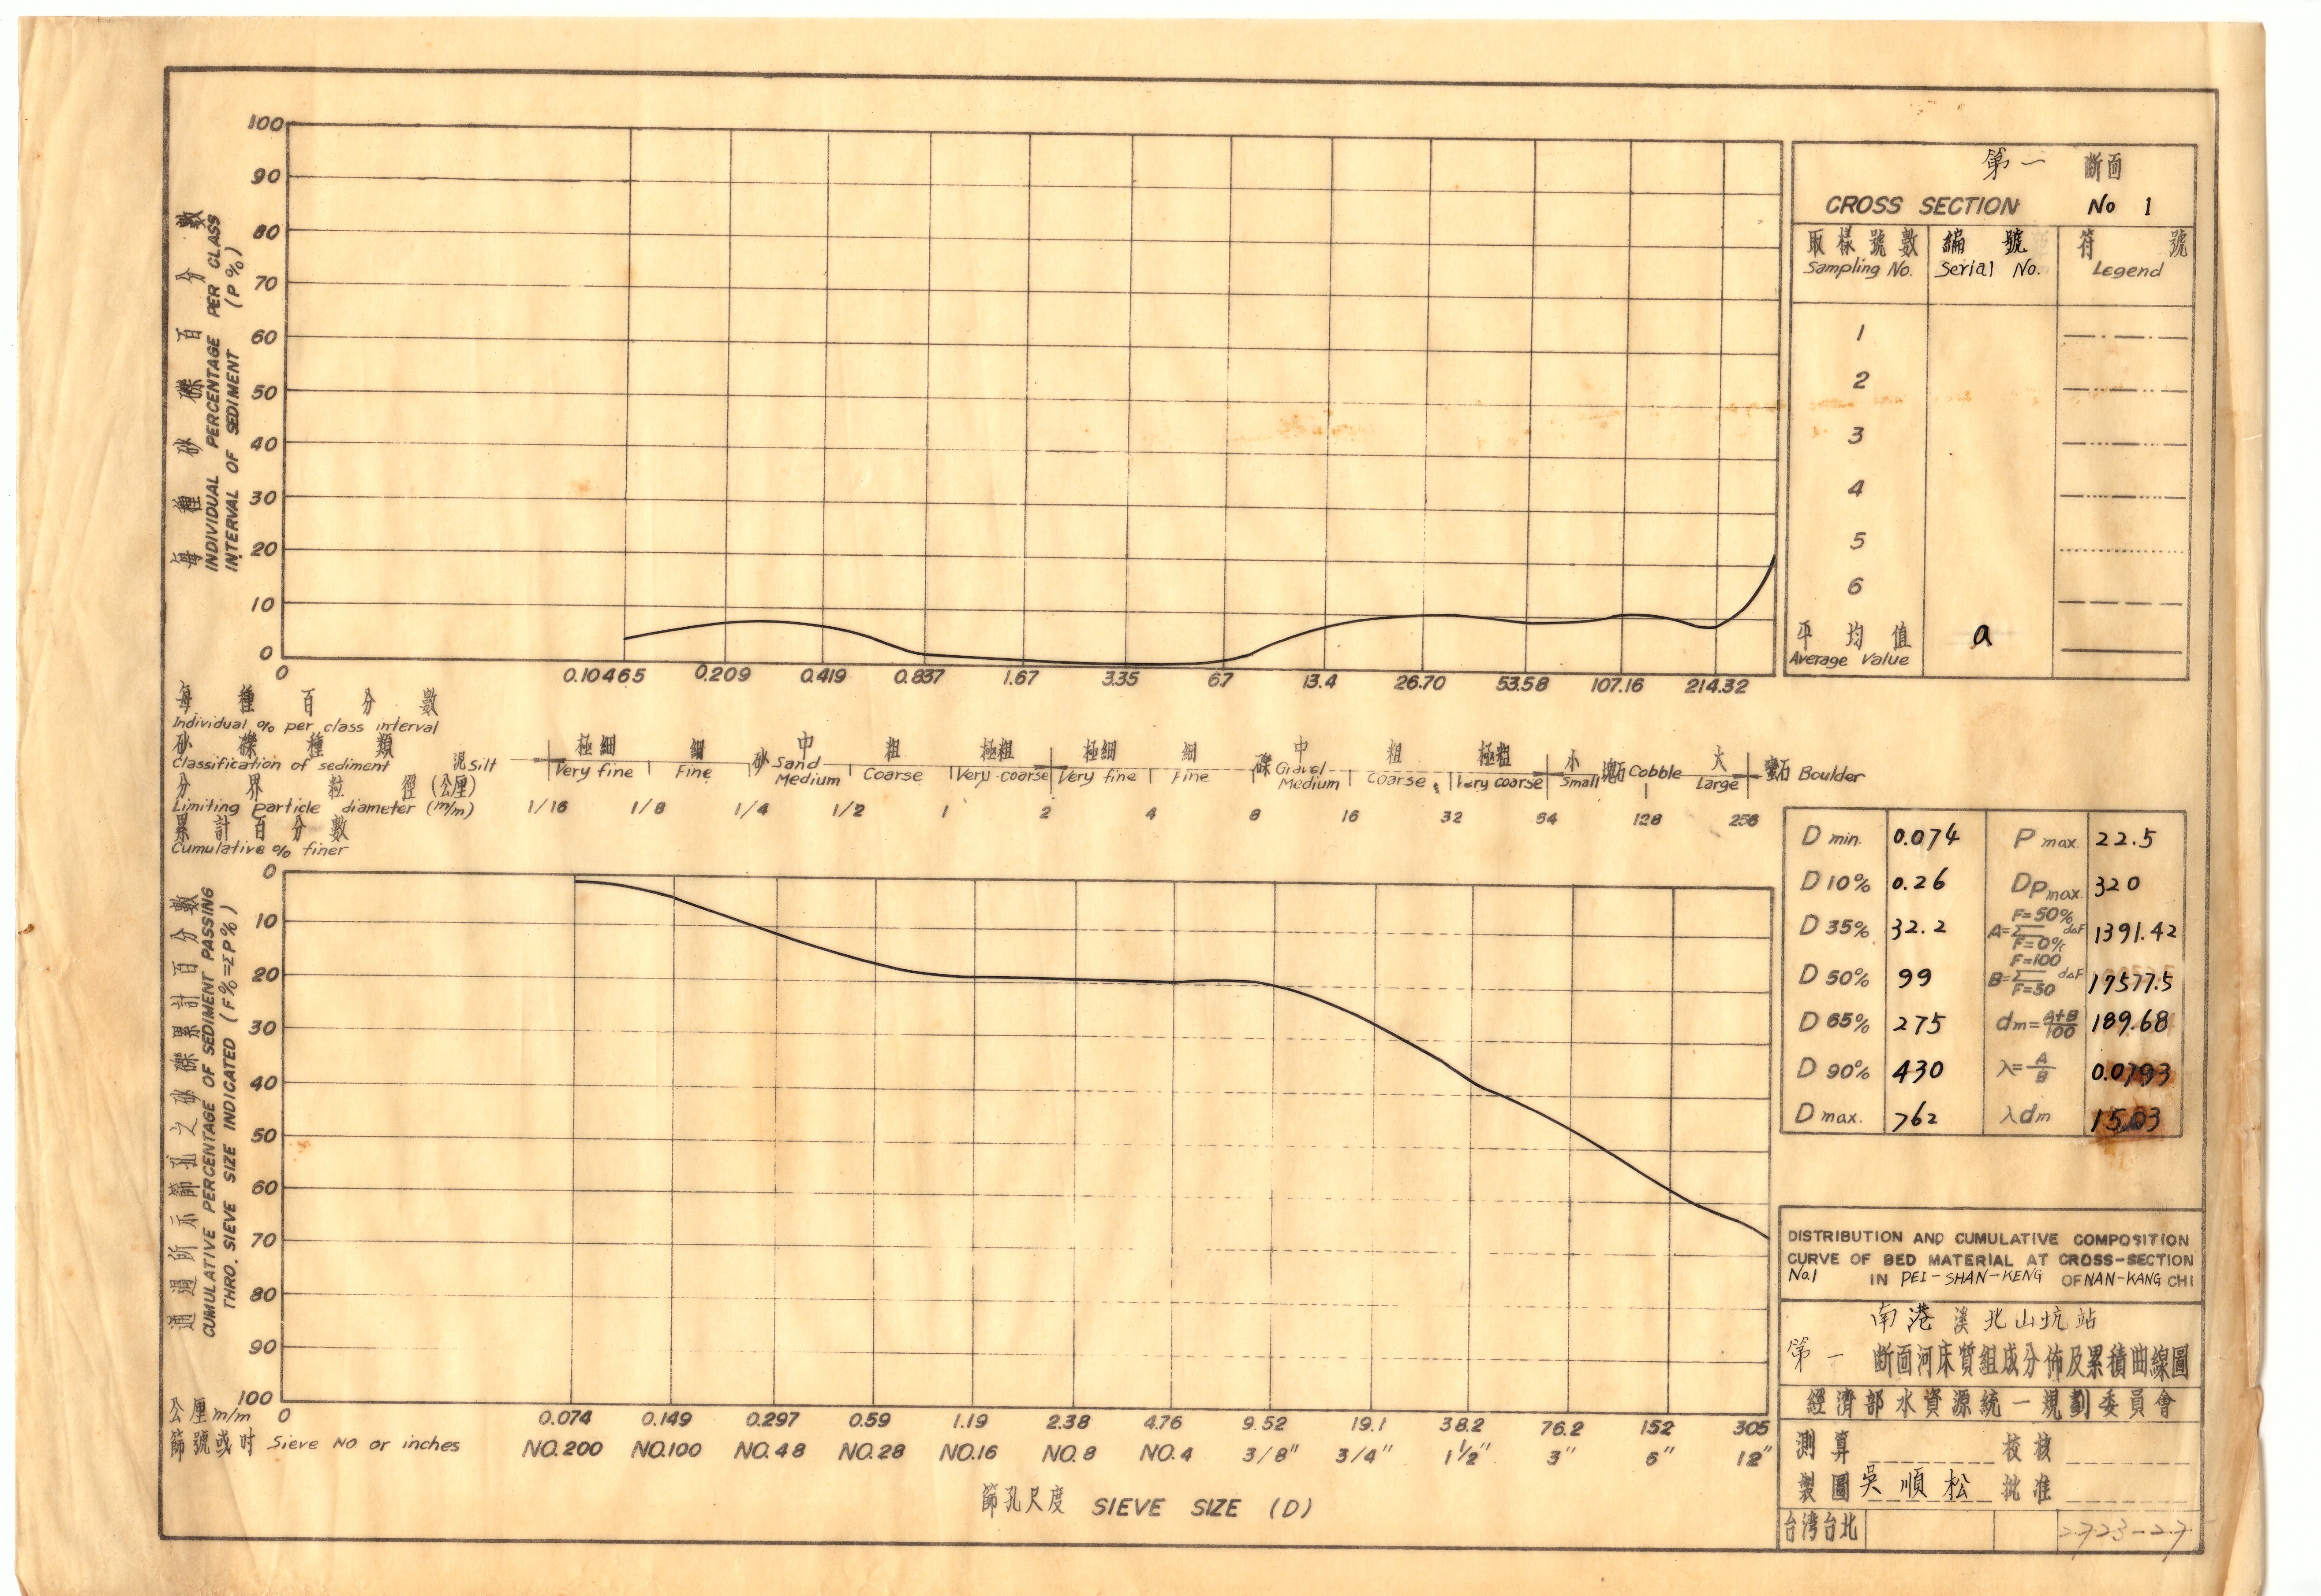 100
90
80
70
60
50
40
30
20
10
0
每種砂礫百分數
INDIVIDUAL PERCENTAGE PER CLASS
INTERVAL OF SEDIMENT (P%)
0 0.10465 0.209 0.419 0.837 1.67 3.35 6.7 13.4 26.70 53.58 107.16 214.32
每種百分數
Individual % per class interval
砂礫種類
Classification of sediment
泥 Silt
極細 細 砂 中 粗 極粗 極細 細 礫 中 粗 極粗 小 塊石 大 蠻石
Very fine Fine Sand Medium Coarse Very coarse Very fine Fine Gravel Medium Coarse Very coarse Small Cobble Large Boulder
分界粒徑(公厘)
Limiting particle diameter (m/m)
1/16 1/8 1/4 1/2 1 2 4 8 16 32 64 128 256
累計百分數
Cumulative % finer
0
10
20
30
40
50
60
70
80
90
100
通過所示篩孔之砂礫累計百分數
CUMULATIVE PERCENTAGE OF SEDIMENT PASSING
THRO. SIEVE SIZE INDICATED (F%=ΣP%)
公厘 m/m 0 0.074 0.149 0.297 0.59 1.19 2.38 4.76 9.52 19.1 38.2 76.2 152 305
篩號或吋 Sieve NO or inches NO.200 NO.100 NO.48 NO.28 NO.16 NO.8 NO.4 3/8" 3/4" 1½" 3" 6" 12"
篩孔尺度 SIEVE SIZE (D)
第一 斷面
CROSS SECTION No 1
取樣號數 編號 符號
Sampling No. Serial No. Legend
1
2
3
4
5
6
平均值 a
Average Value
D min. 0.074 P max. 22.5
D 10% 0.26 DPmax. 320
D 35% 32.2 A=Σ F=50% F=0% d△F 1391.42
D 50% 99 B=Σ F=100 F=50 d△F 17577.5
D 65% 275 dm=A+B/100 189.68
D 90% 430 λ=A/B 0.0793
D max. 762 λdm 15.03
DISTRIBUTION AND CUMULATIVE COMPOSITION
CURVE OF BED MATERIAL AT CROSS-SECTION
No.1 IN PEI-SHAN-KENG OF NAN-KANG CHI
南港溪北山坑站
第一 斷面河床質組成分佈及累積曲線圖
經濟部水資源統一規劃委員會
測算 校核
製圖 吳順松 批准
台灣台北